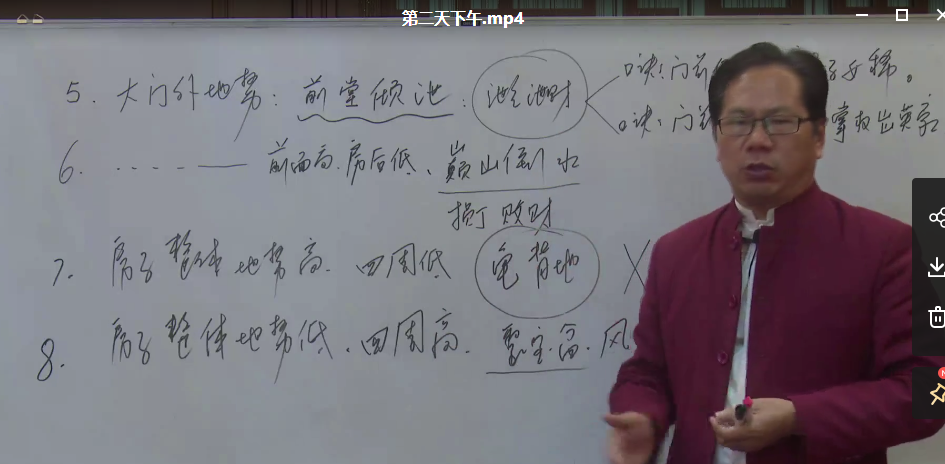 第二天下午.mp4
5. 大门外地势：前堂倾泄：泄泄财
口诀：门前
稀。
口诀：门前
6. ....—— 前面高.房后低、巅山倒水
损丁败财
7. 房子整体地势高.四周低 龟背地 X
8. 房子整体地势低.四周高. 聚宝盆.风